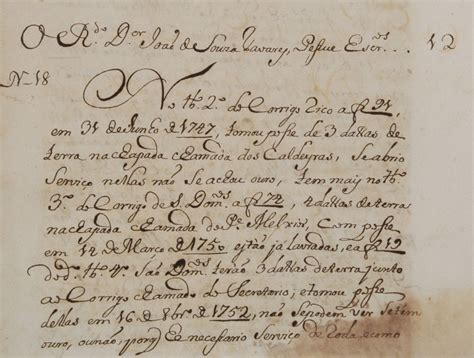 O R.do D.or João de Souza Tavarez, Possue Escr.os . . . 12
N.º 18
No tt.º 2.º do Corrigo Rico a f 91,
em 31 de Junho de 1747, tomou posse de 3 dattas de
terra na chapada chamada dos Caldeyras, se abrio
Serviço nellas não se achou ouro, tem mais no tt.º
3.º do Corrigo de S. Dom.os a f 74, 4 dattas de terra
na chapada chamada de P.e Melxior, com posse
em 14 de Março de 1750 estão ja lavradas, e a f 212
do d.º tt.º 4.º São Dom.os terão 3 dattas de terra junto
ao Corrigo chamado do Secretario; e tomou posse
dellas em 16 de 8br.º de 1752, não se podem ver se tem
ouro, ou não, porq̃ he necessario Serviço de Roda, e como